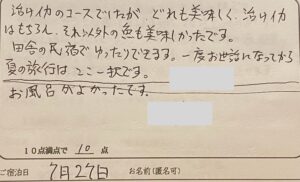 活けイカのコースでしたが、どれも美味しく、活けイカ
はもちろん、それ以外の魚も美味しかったです。
田舎の民宿でゆったりできます。一度お世話になってから
夏の旅行はここ一択です。
お風呂がよかったです。
10点満点で 10 点
ご宿泊日 7月27日 お名前(匿名可)